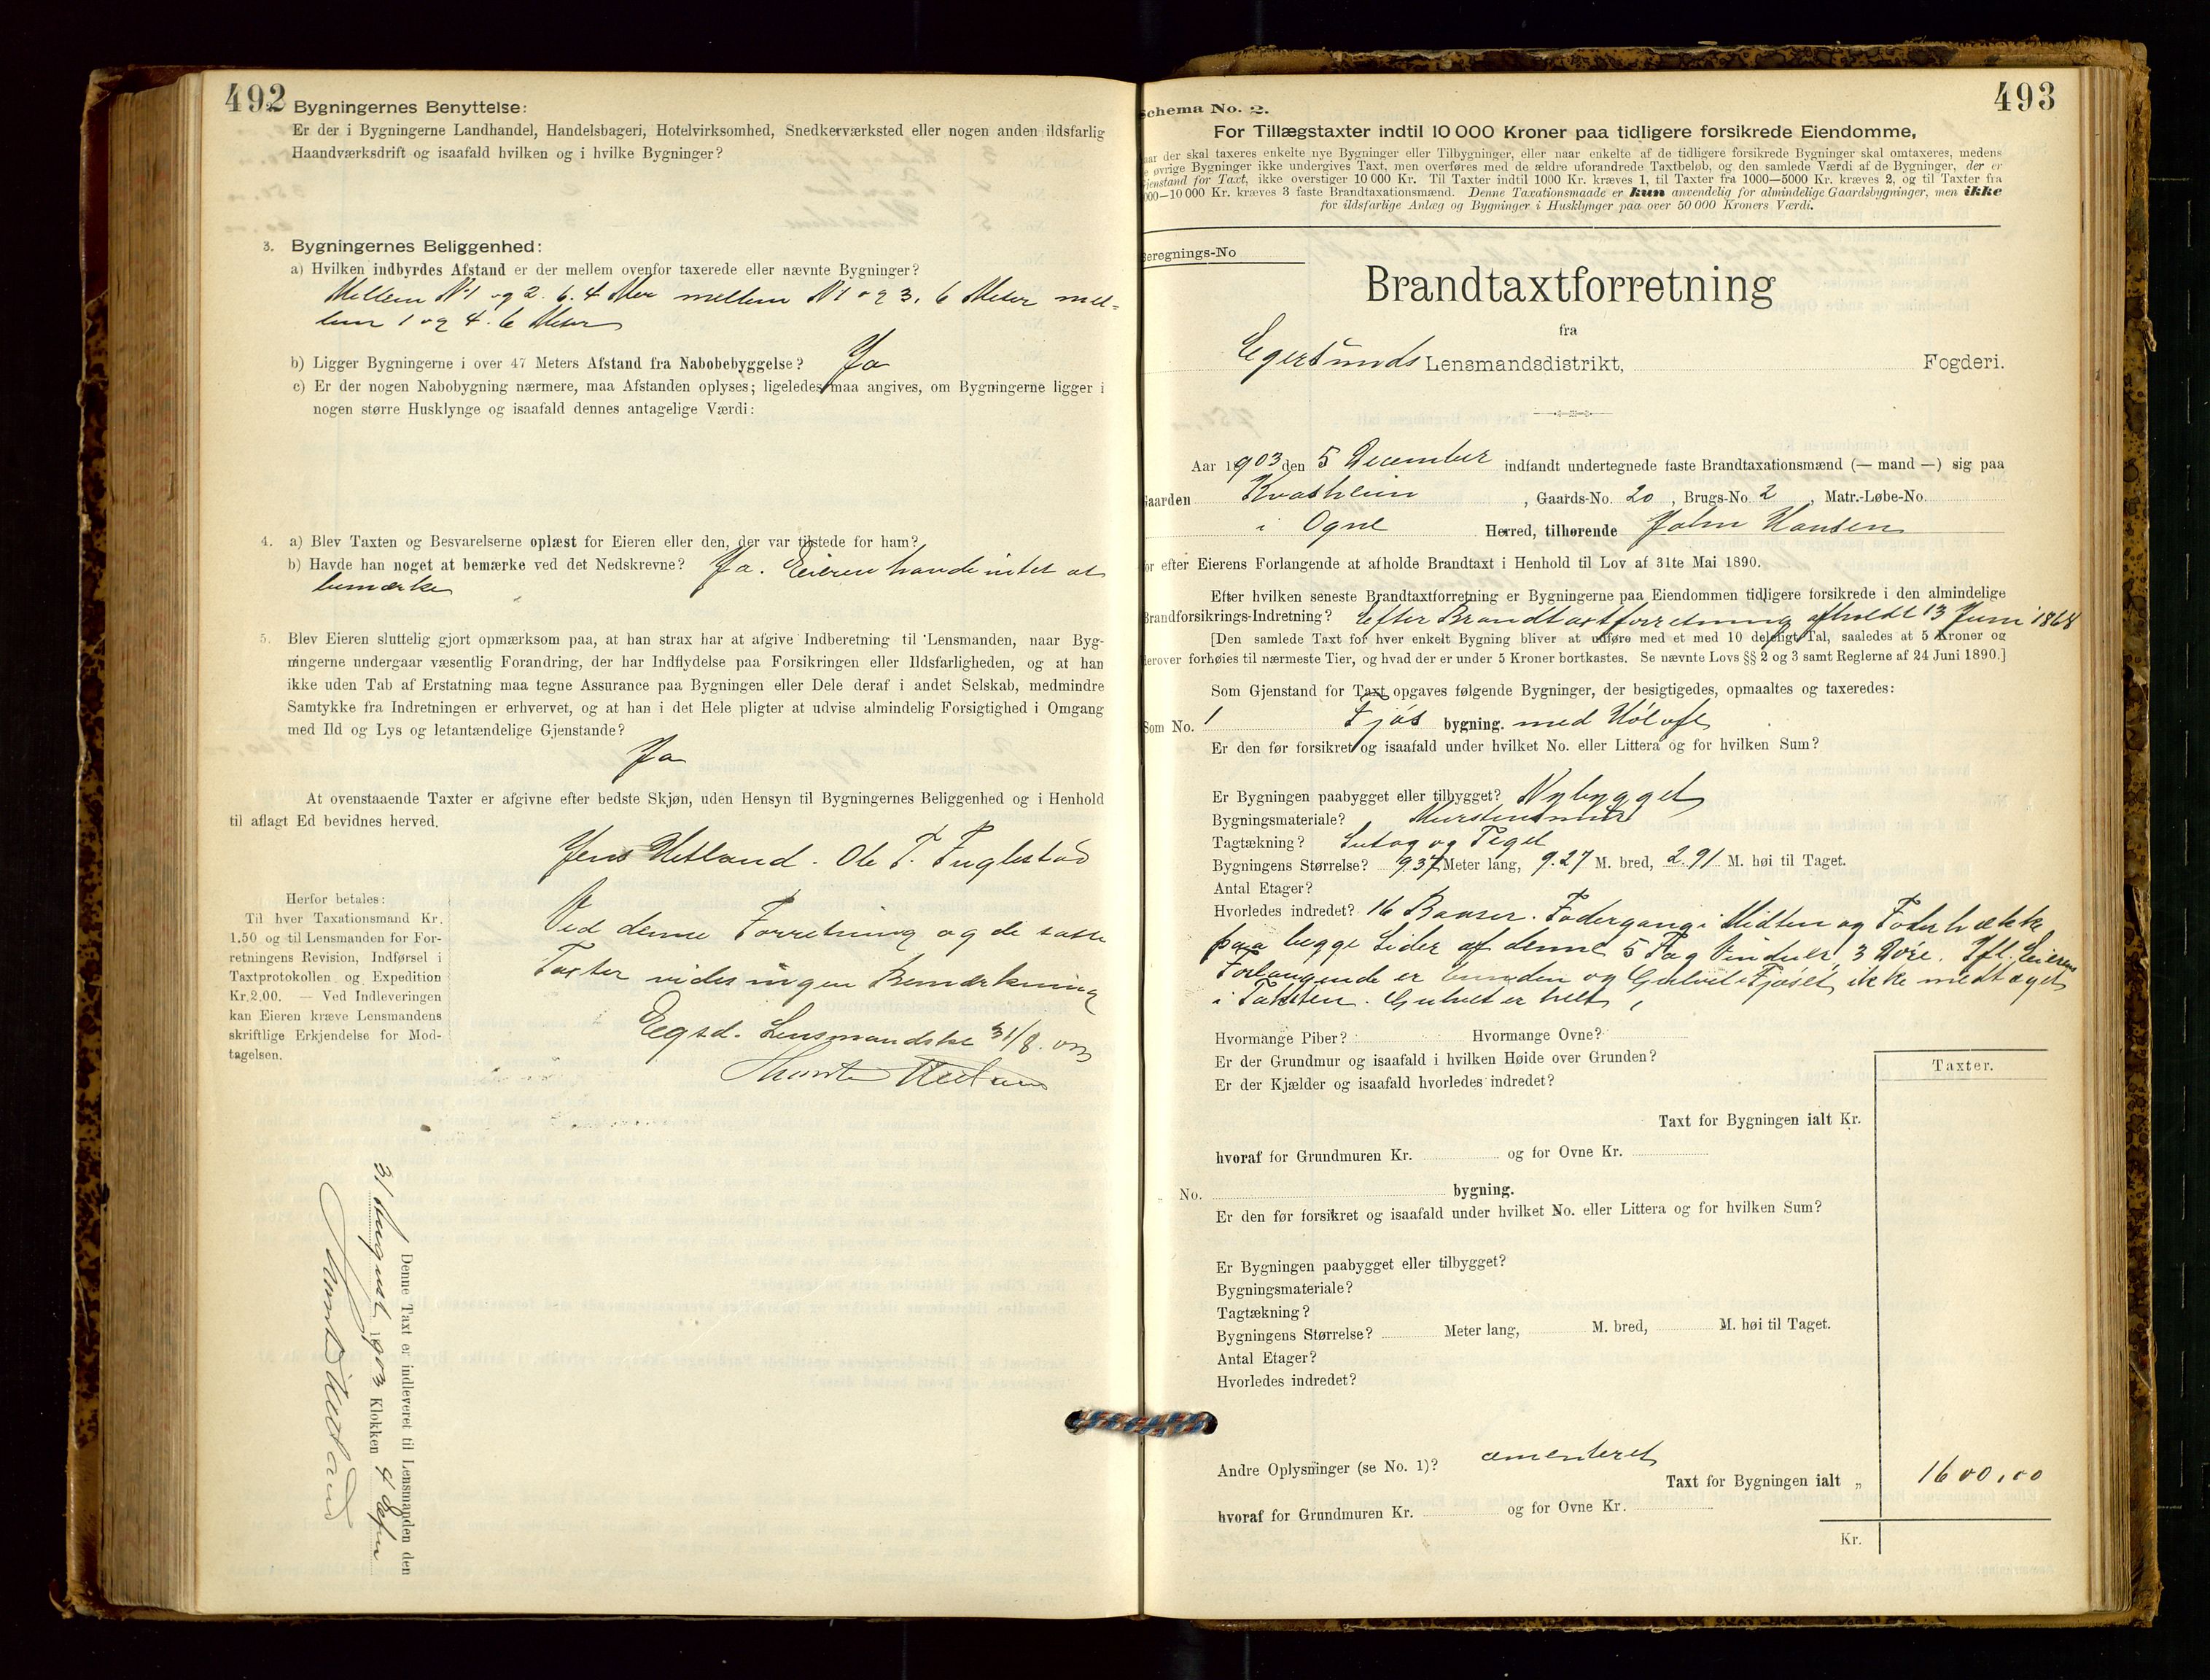 492 Bygningernes Benyttelse:
Er der i Bygningerne Landhandel, Handelsbageri, Hotelvirksomhed, Snedkerværksted eller nogen anden ildsfarlig
Haandværksdrift og isaafald hvilken og i hvilke Bygninger?
3. Bygningernes Beliggenhed:
a) Hvilken indbyrdes Afstand er der mellem ovenfor taxerede eller nævnte Bygninger?
Mellem N1 og 2. 6.4 Mer mellem N1 og 3, 6 Meter mel=
lem 1 og 4. 6 Meter
b) Ligger Bygningerne i over 47 Meters Afstand fra Nabobebyggelse? Ja
c) Er der nogen Nabobygning nærmere, maa Afstanden oplyses; ligeledes maa angives, om Bygningerne ligger i
nogen større Husklynge og isaafald dennes antagelige Værdi:
4. a) Blev Taxten og Besvarelserne oplæst for Eieren eller den, der var tilstede for ham?
b) Havde han noget at bemærke ved det Nedskrevne? Ja. Eieren havde intet at
bemærke
5. Blev Eieren sluttelig gjort opmærksom paa, at han strax har at afgive Indberetning til Lensmanden, naar Byg-
ningerne undergaar væsentlig Forandring, der har Indflydelse paa Forsikringen eller Ildsfarligheden, og at han
ikke uden Tab af Erstatning maa tegne Assurance paa Bygningen eller Dele deraf i andet Selskab, medmindre
Samtykke fra Indretningen er erhvervet, og at han i det Hele pligter at udvise almindelig Forsigtighed i Omgang
med Ild og Lys og letantændelige Gjenstande?
Ja
At ovenstaaende Taxter er afgivne efter bedste Skjøn, uden Hensyn til Bygningernes Beliggenhed og i Henhold
til aflagt Ed bevidnes herved.
Jens Hetland. Ole T. Fuglestad
Herfor betales:
Til hver Taxationsmand Kr.
1.50 og til Lensmanden for For-
retningens Revision, Indførsel i
Taxtprotokollen og Expedition
Kr. 2.00. — Ved Indleveringen
kan Eieren kræve Lensmandens
skriftlige Erkjendelse for Mod-
tagelsen.
Ved denne Forretning og de satte
Taxter vides ingen Bemærkning
Eegsd. Lensmandsk 31/8. 03
Denne Taxt er indleveret til Lensmanden den
31 August 1903 Klokken 4 Efm
493
Schema No. 2.
For Tillægstaxter indtil 10 000 Kroner paa tidligere forsikrede Eiendomme,
aar der skal taxeres enkelte nye Bygninger eller Tilbygninger, eller naar enkelte af de tidligere forsikrede Bygninger skal omtaxeres, medens
e øvrige Bygninger ikke undergives Taxt, men overføres med de ældre uforandrede Taxtbeløb, og den samlede Værdi af de Bygninger, der er
jenstand for Taxt, ikke overstiger 10 000 Kr. Til Taxter indtil 1000 Kr. kræves 1, til Taxter fra 1000—5000 Kr. kræves 2, og til Taxter fra
000—10 000 Kr. kræves 3 faste Brandtaxationsmænd. Denne Taxationsmaade er kun anvendelig for almindelige Gaardsbygninger, men ikke
for ildsfarlige Anlæg og Bygninger i Husklynger paa over 50 000 Kroners Værdi.
Beregnings-No
Brandtaxtforretning
fra
Egersunds Lensmandsdistrikt, Fogderi.
Aar 1903 den 5 December indfandt undertegnede faste Brandtaxationsmænd (— mand —) sig paa
Gaarden Kvasheim, Gaards-No. 20, Brugs-No. 2, Matr.-Løbe-No.
i Ogne Herred, tilhørende John Hansen
or efter Eierens Forlangende at afholde Brandtaxt i Henhold til Lov af 31te Mai 1890.
Efter hvilken seneste Brandtaxtforretning er Bygningerne paa Eiendommen tidligere forsikrede i den almindelige
Brandforsikrings-Indretning? Efter Brandtaxtforretning afholdt 13 Juni 1868
[Den samlede Taxt for hver enkelt Bygning bliver at udføre med et med 10 deleligt Tal, saaledes at 5 Kroner og
derover forhøies til nærmeste Tier, og hvad der er under 5 Kroner bortkastes. Se nævnte Lovs §§ 2 og 3 samt Reglerne af 24 Juni 1890.]
Som Gjenstand for Taxt opgaves følgende Bygninger, der besigtigedes, opmaaltes og taxeredes:
Som No. 1 Fjøs bygning. med Höloft
Er den før forsikret og isaafald under hvilket No. eller Littera og for hvilken Sum?
Er Bygningen paabygget eller tilbygget? Nybygget
Bygningsmateriale? Murstensmur
Tagtækning? Sutag og Tegel
Bygningens Størrelse? 9.37 Meter lang, 9.27 M. bred, 2.91 M. høi til Taget.
Antal Etager?
Hvorledes indret? 16 Baaser. Fodergang i Midten og Foderhække
paa begge Sider af denne 5 Fag Vinduer, 3 Döre. Ifl. Eierens
Forlangende er Grunden og Gulvet i Fjöset ikke medtaget
i Taksten. Gulvet er helt
Hvormange Piber? Hvormange Ovne?
Er der Grundmur og isaafald i hvilken Høide over Grunden?
Er der Kjælder og isaafald hvorledes indredet?
Taxter.
Taxt for Bygningen ialt Kr.
hvoraf for Grundmuren Kr. og for Ovne Kr.
„ No. bygning.
Er den før forsikret og isaafald under hvilket No. eller Littera og for hvilken Sum?
Er Bygningen paabygget eller tilbygget?
Bygningsmateriale?
Tagtækning?
Bygningens Størrelse? Meter lang, M. bred, M. høi til Taget.
Antal Etager?
Hvorledes indredet?
Andre Oplysninger (se No. 1)? cementeret
Taxt for Bygningen ialt „ 1600,00
hvoraf for Grundmuren Kr. og for Ovne Kr.
Kr.